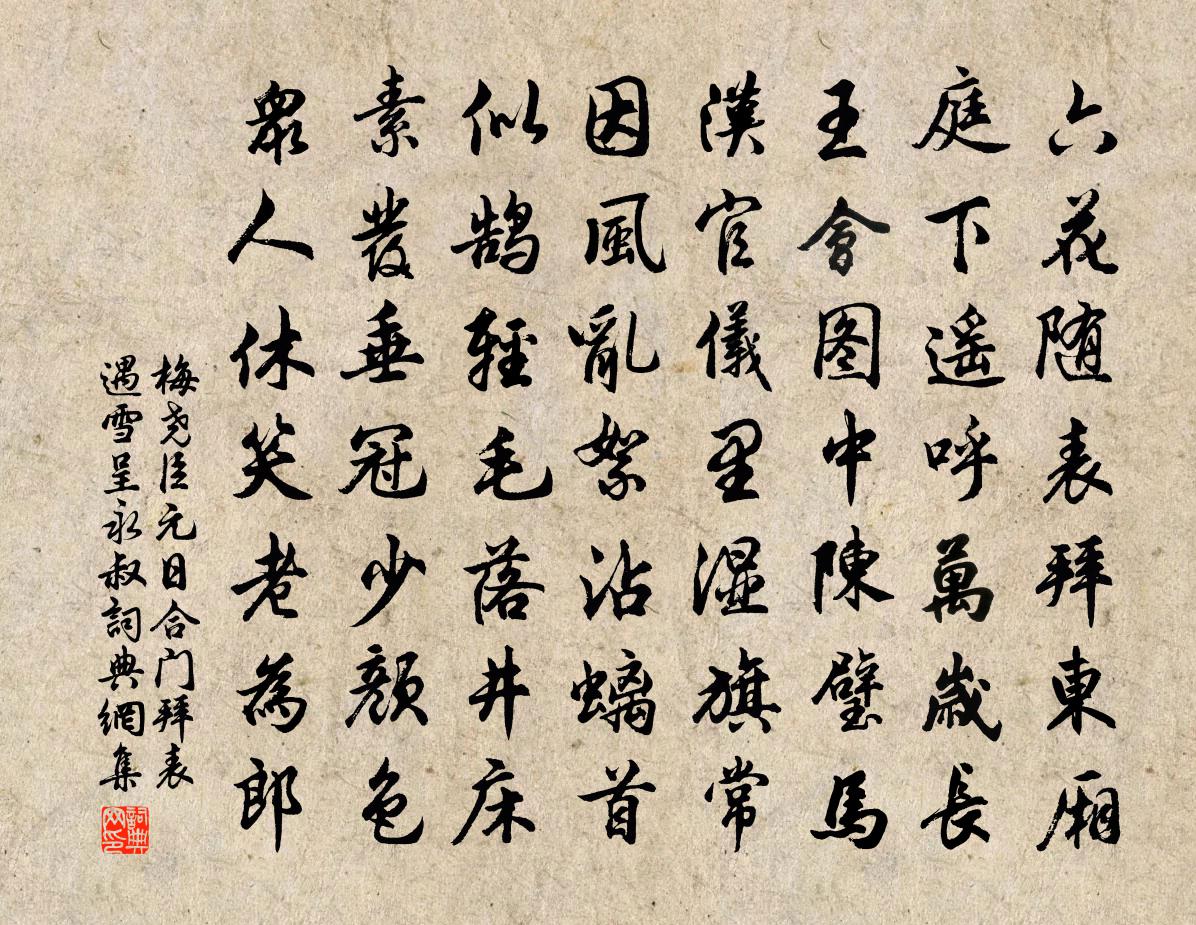 六花随表拜東厢
庭下遥呼萬歲長
王會图中陳璧馬
漢官儀里湿旗常
因風亂絮沾螭首
似鹄輕毛落井床
素髮垂冠少顔色
衆人休笑老為郎
梅尧臣元日合门拜表
遇雪呈永叔詞典網集
詞典网印